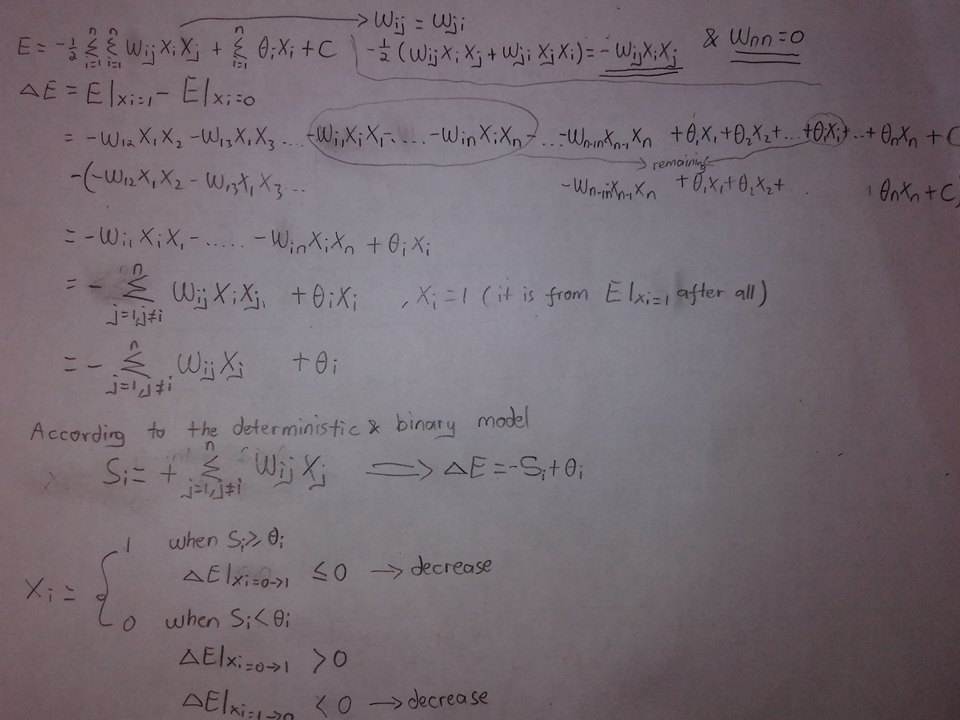 W_ij = W_ji
E = -½ Σ_{i=1}^{n} Σ_{i=1}^{n} W_ij X_i X_j + Σ_{i=1}^{n} θ_i X_i + C
-½ (W_ij X_i X_j + W_ji X_j X_i) = -W_ij X_i X_j & W_nn = 0
ΔE = E|x_i=1 - E|x_i=0
= -W_12 X_1 X_2 - W_13 X_1 X_3 ... -W_i1 X_i X_1 - ... -W_in X_i X_n - ... -W_n-1n X_n-1 X_n + θ_1 X_1 + θ_2 X_2 + ... + θ_i X_i + ... + θ_n X_n + C
remaining
-(-W_12 X_1 X_2 - W_13 X_1 X_3 ... -W_n-1n X_n-1 X_n + θ_1 X_1 + θ_2 X_2 + θ_n X_n + C)
= -W_i1 X_i X_1 - ..... -W_in X_i X_n + θ_i X_i
= - Σ_{j=1,j≠i}^{n} W_ij X_i X_j + θ_i X_i , X_i = 1 (it is from E|x_i=1 after all)
= - Σ_{j=1,j≠i}^{n} W_ij X_j + θ_i
According to the deterministic & binary model
S_i = + Σ_{j=1,j≠i}^{n} W_ij X_j ⟹ ΔE = -S_i + θ_i
X_i = { 1 when S_i ≥ θ_i
ΔE|x_i=0→1 ≤ 0 → decrease
0 when S_i < θ_i
ΔE|x_i=0→1 > 0
ΔE|x_i=1→0 < 0 → decrease